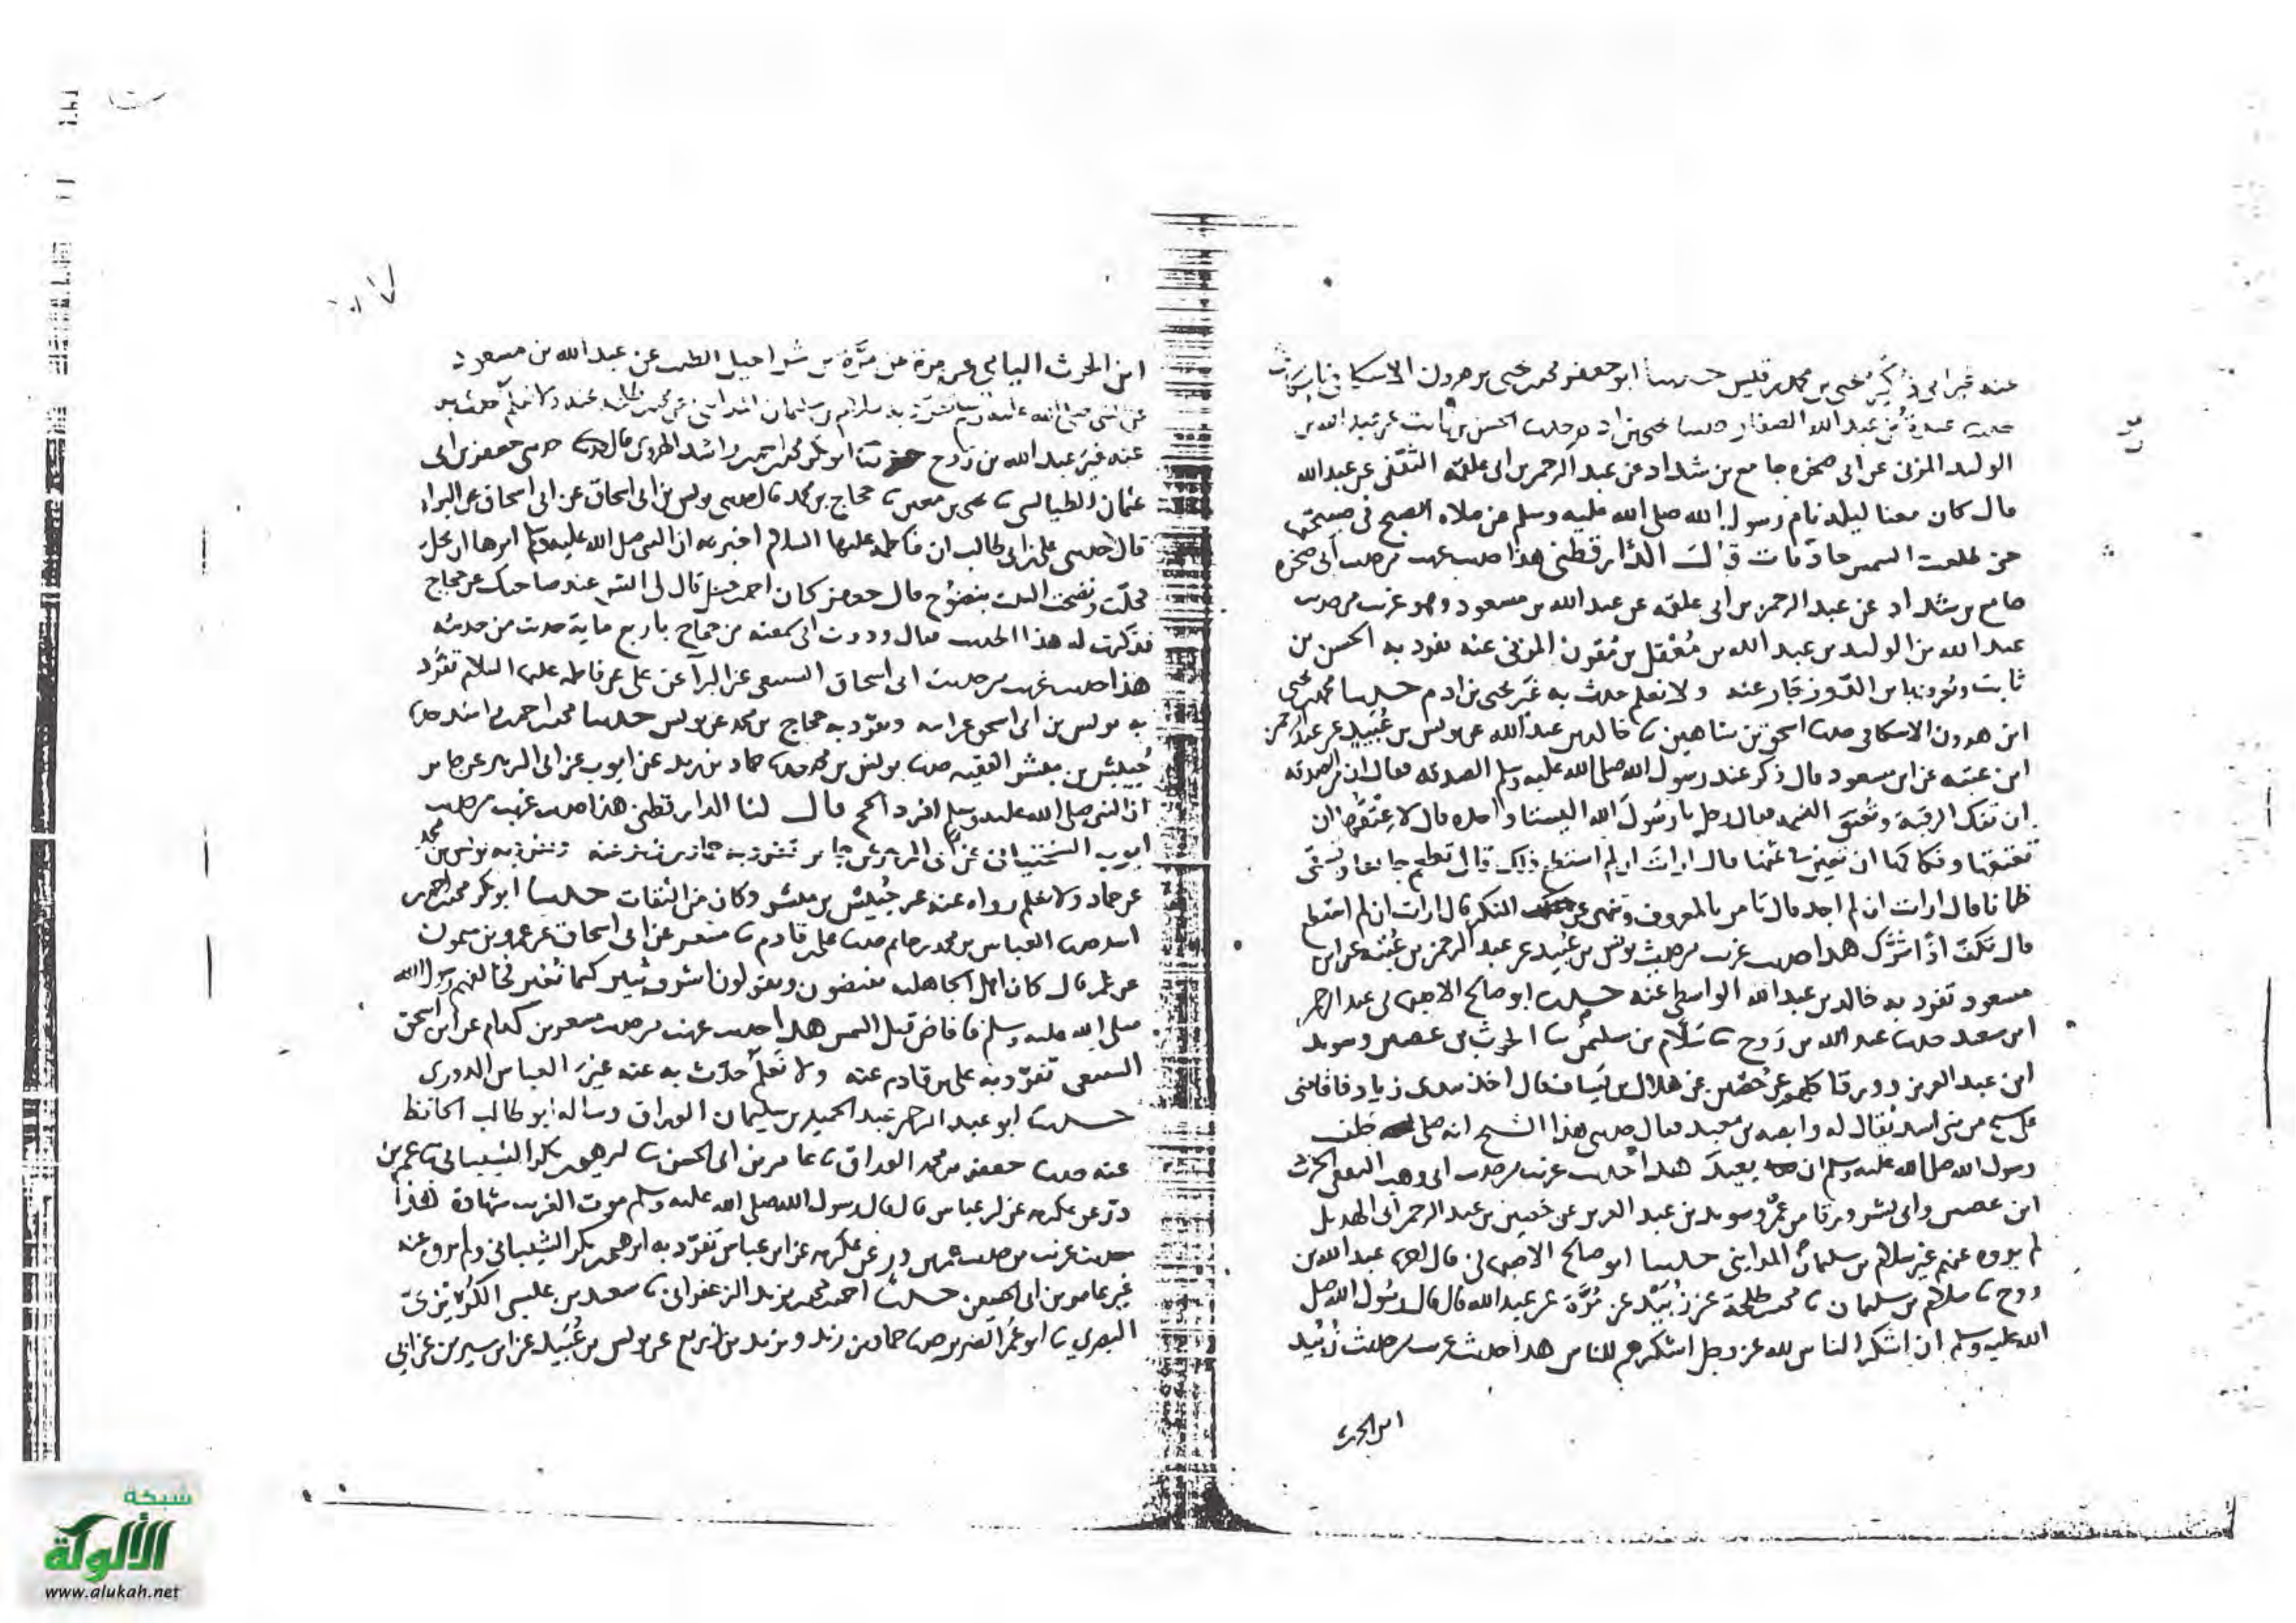 عنه غير ابي ذكير يحيى بن محمد بن قيس حدثنا ابو جعفر محمد بن يحيى بن هرون الاسكافي باسكاف
حدثنا عبدة بن عبد الله الصفار حدثنا يحيى بن ادم حدثنا الحسن بن ثابت عن عبد الله بن
الوليد المزني عن ابي صخره جامع بن شداد عن عبد الرحمن بن ابي علقمه الثقفي عن عبد الله
قال كان معنا ليله نام رسول الله صلى الله عليه وسلم عن صلاه الصبح في
حتى طلعت الشمس قال الدارقطني هذا حديث غريب من حديث ابي صخره
جامع بن شداد عن عبد الرحمن بن ابي علقمه عن عبد الله بن مسعود وهو غريب من حديث
عبد الله بن الوليد بن عبد الله بن معقل بن مقرن المزني عنه تفرد به الحسن بن
ثابت عنه ولا نعلم حدث به غير يحيى بن ادم حدثنا محمد بن يحيى
ابن هرون الاسكافي حدثنا اسحق بن شاهين نا خالد بن عبد الله عن يونس بن عبيد عن عبد الرحمن
ابن عتبه عن ابن مسعود قال ذكر عند رسول الله صلى الله عليه وسلم الصدقه فقال ان من الصدقه
ان تفك الرقبة وتعتق النسمه فقال رجل يا رسول الله اليستا واحده قال لا عتقها ان
تعتقها وفكاكها ان تعين في ثمنها قال ارايت ان لم استطع ذلك قال تطعم جايعا وتسقي
ظمانا قال ارايت ان لم اجد قال تامر بالمعروف وتنهى عن المنكر قال ارايت ان لم استطع
قال تكف اذا شرك هذا حديث غريب من حديث يونس بن عبيد عن عبد الرحمن بن عتبه عن ابن
مسعود تفرد به خالد بن عبد الله الواسطي عنه حدثنا ابو صالح الاصبهاني عبد الرحمن
ابن سعيد حدثنا عبد الله بن روح نا سلام بن سليمن نا الحرث بن عصين وسويد
ابن عبد العزيز وورقا كلهم عن حصين عن هلال بن يساف قال اخذ بيدي زياد فاقامني
على شيخ من بني اسد يقال له وابصه بن معبد فقال حدثني هذا الشيخ انه صلى خلف
رسول الله صلى الله عليه وسلم ان يعيد هذا حديث غريب من حديث ابي وهب الثقفي الحرث
ابن عصين وابي بشر ورقا بن عمر وسويد بن عبد العزيز عن حصين بن عبد الرحمن ابي الهذيل
لم يروه عنهم غير سلام بن سليمان المدايني حدثنا ابو صالح الاصبهاني قال نا عبد الله بن
روح نا سلام بن سليمان نا محمد بن طلحة عن زبيد عن مرة عن عبد الله قال قال رسول الله صلى
الله عليه وسلم ان اشكر الناس لله عز وجل اشكرهم للناس هذا حديث غريب من حديث زبيد
ابن الحرث
ابن الحرث اليامي عن مرة بن شراحيل الطيب عن عبد الله بن مسعود
عن النبي صلى الله عليه وسلم تفرد به سلام بن سليمان المدايني عن محمد بن طلحه عنه ولا نعلم حدث به
عنه غير عبد الله بن روح حدثنا ابو بكر محمد بن احمد بن اسد الهروي قال حدثني جعفر بن ابي
عثمان الطيالسي نا يحيى بن معين نا حجاج بن محمد نا يونس بن ابي اسحاق عن ابي اسحاق عن البراء
قال حدثني علي بن ابي طالب ان فاطمه عليها السلام اخبرته ان النبي صلى الله عليه وسلم امرها ان تحل
فحلت ونضحت البيت بنضوح قال جعفر كان احمد بن حنبل قال لي ايش عند صاحبك عن حجاج
فذكرت له هذا الحديث فقال وددت اني سمعته من حجاج باربع مايه حديث من حديثه
هذا حديث غريب من حديث ابي اسحاق السبيعي عن البرآ عن علي عن فاطمه عليها السلام تفرد
به يونس بن ابي اسحق عن ابيه وتفرد به حجاج بن محمد عن يونس حدثنا محمد بن احمد بن اسد حدثنا
جبيش بن مبشر الفقيه حدثنا يونس بن محمد حدثنا حماد بن زيد عن ايوب عن ابي الزبير عن جابر
ان النبي صلى الله عليه وسلم افرد الحج قال لنا الدارقطني هذا حديث غريب من حديث
ايوب السختياني عن ابي الزبير عن جابر تفرد به حماد بن زيد عنه وتفرد به يونس بن محمد
عن حماد ولا نعلم رواه عنه غير جبيش بن مبشر وكان من الثقات حدثنا ابو بكر محمد بن احمد بن
اسد حدثنا العباس بن محمد بن حاتم حدثنا علي بن قادم نا مسعر عن ابي اسحاق عن عمرو بن ميمون
عن عمر قال كان اهل الجاهليه يفيضون ويقولون اشرق ثبير كيما نغير فخالفهم رسول الله
صلى الله عليه وسلم فافاض قبل الشمس هذا حديث غريب من حديث مسعر بن كدام عن ابي اسحق
السبيعي تفرد به علي بن قادم عنه ولا نعلم حدث به عنه غير العباس الدوري
حدثنا ابو عبد الرحمن عبد الحميد بن سليمان الوراق وساله ابو طالب الحافظ
عنه حدثنا جعفر بن محمد الوراق نا عامر بن ابي الحسن نا ابرهيم بن بكر الشيباني نا عمر بن
ذر عن عكرمه عن ابن عباس قال قال رسول الله صلى الله عليه وسلم موت الغريب شهادة هذا
حديث غريب من حديث عمر بن ذر عن عكرمه عن ابن عباس تفرد به ابرهيم بن بكر الشيباني ولم يروه عنه
غير عامر بن ابي الحسين حدثنا احمد بن محمد بن يزيد الزعفراني نا سعيد بن عيسى الكريزي
البصري نا ابو عمر الضرير حدثنا حماد بن زيد ويزيد بن زريع عن يونس بن عبيد عن ابن سيرين عن ابي
شبكة
الألوكة
www.alukah.net